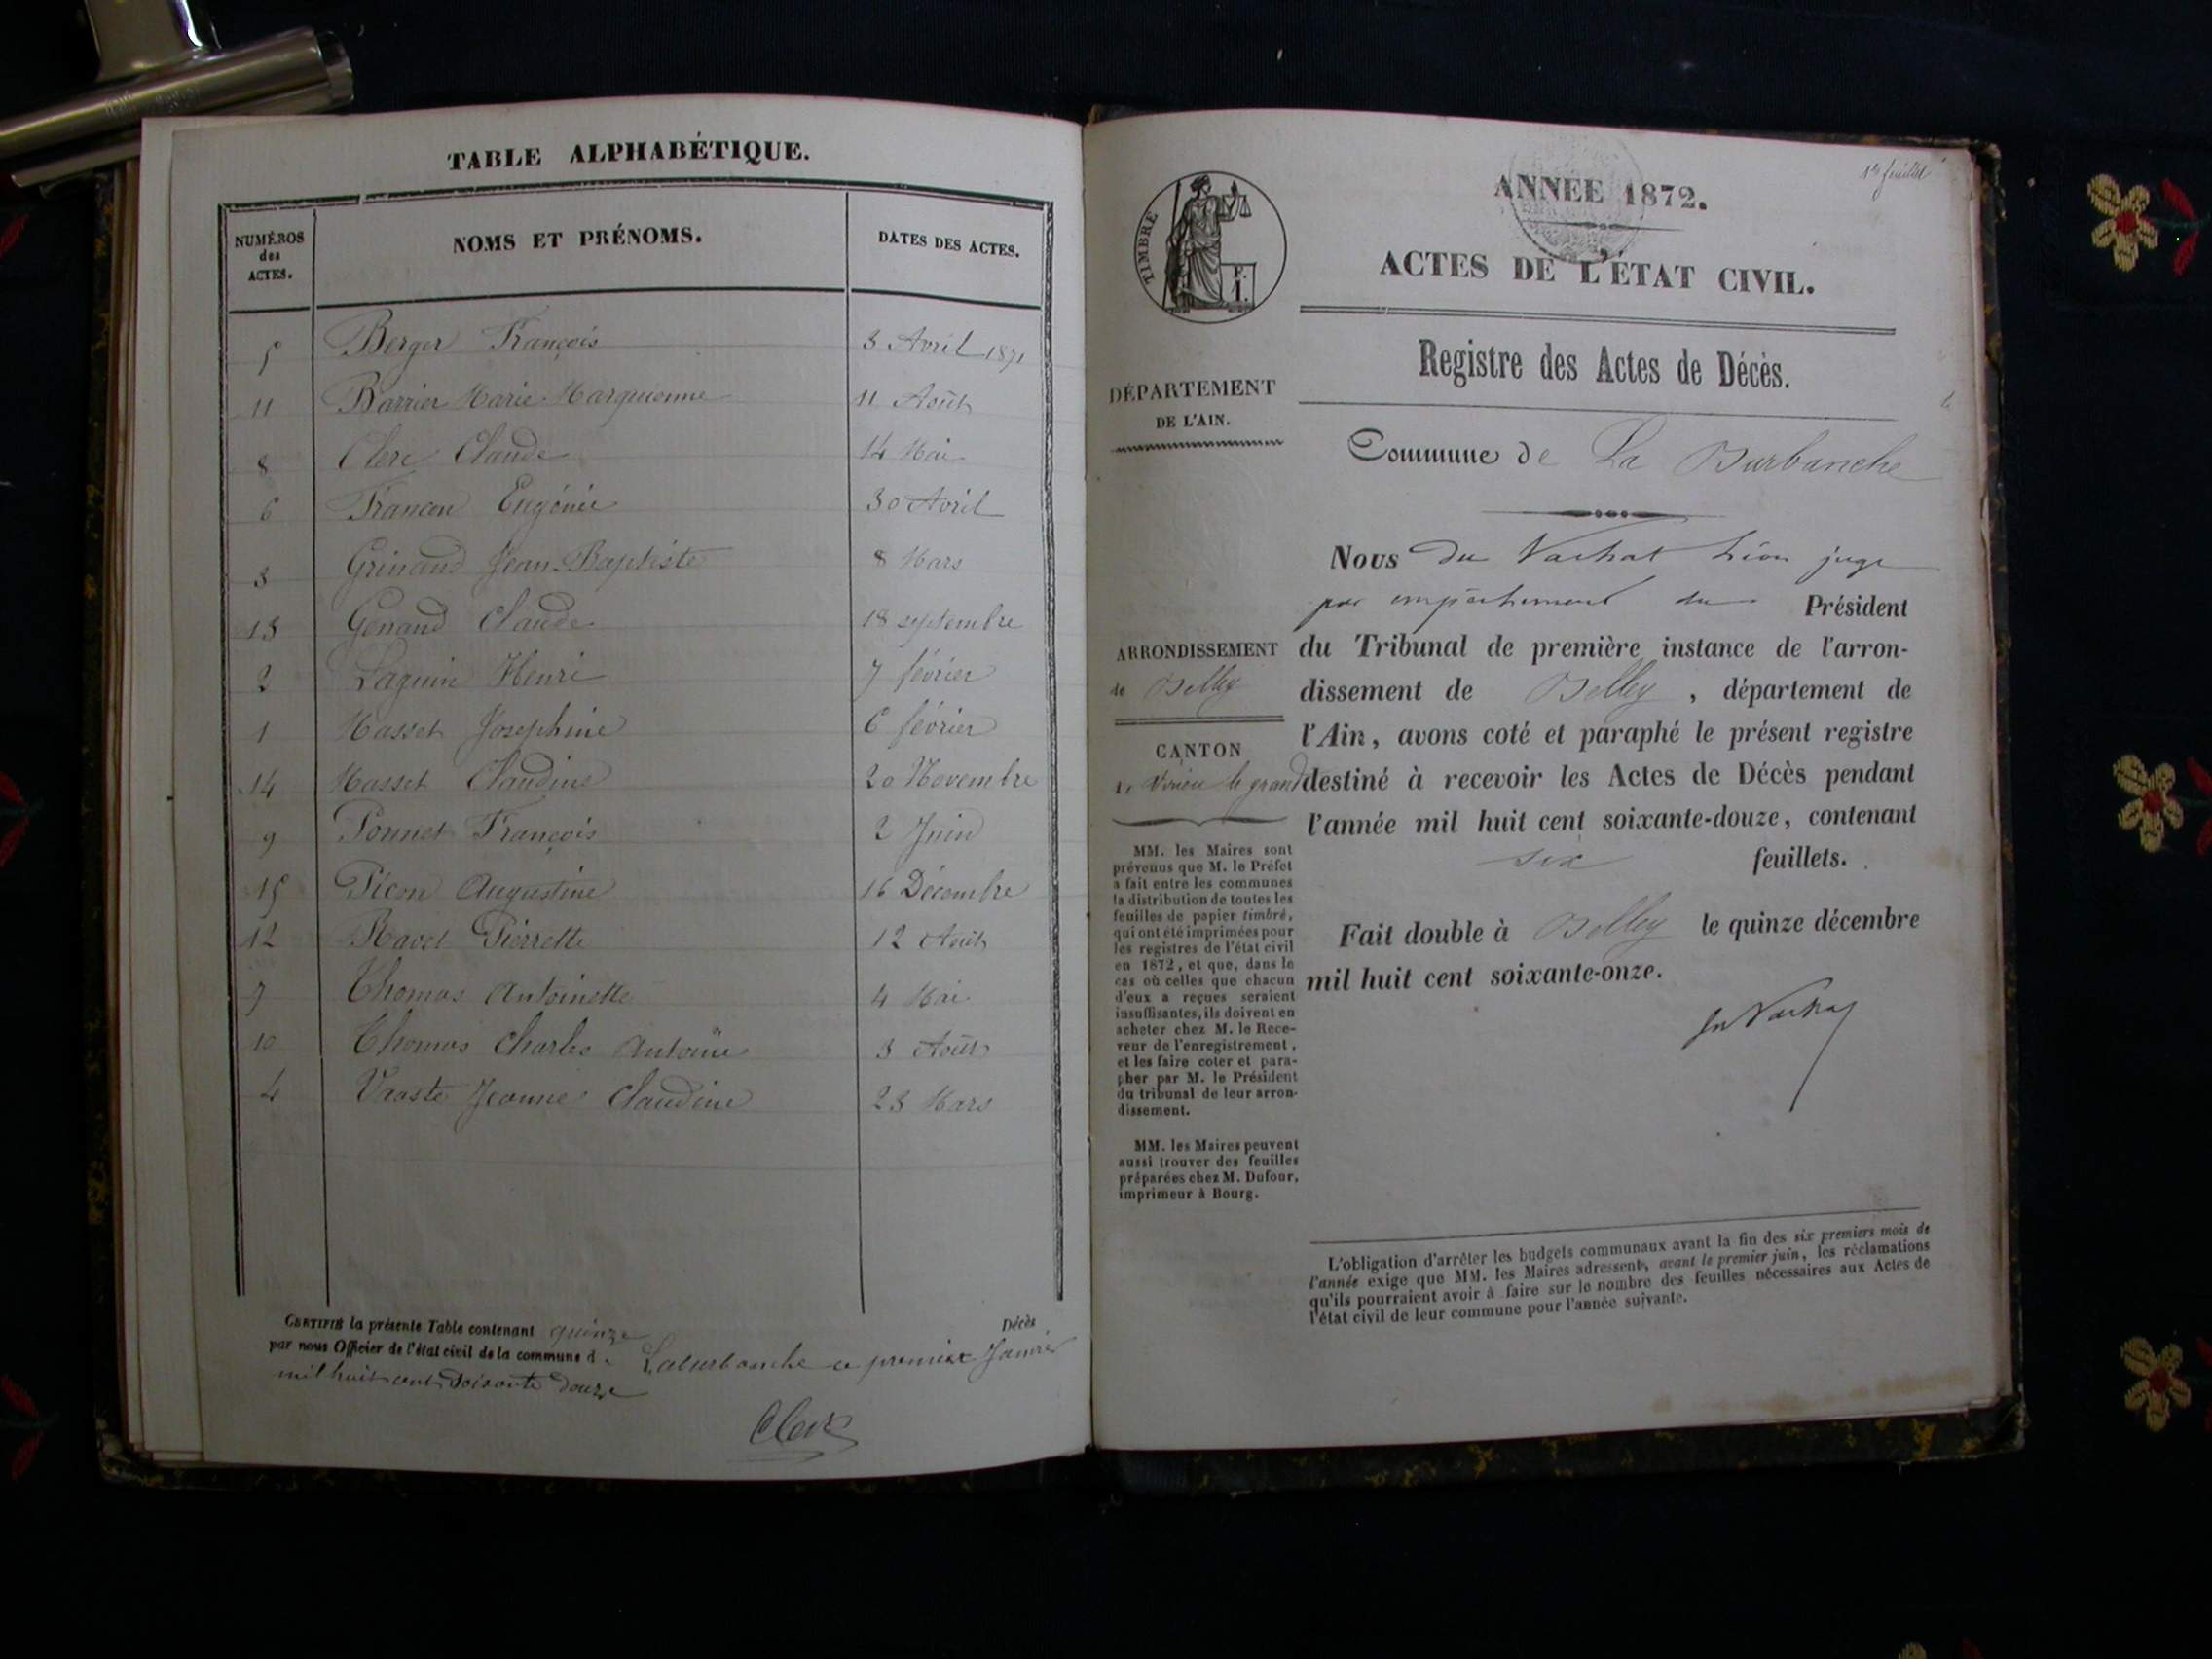 TABLE ALPHABÉTIQUE.
NUMÉROS
des
ACTES.
NOMS ET PRÉNOMS.
DATES DES ACTES.
5 Berger François 3 Avril 1871
11 Barrier Marie 11 Août
8 Clerc Claude 14 Mai
6 Francon Eugénie 30 Avril
3 Grinand Jean-Baptiste 8 Mars
13 Genand Claude 18 septembre
2 Laguin Henri 7 février
1 Masset Josephine 6 février
14 Masset Claudine 20 Novembre
9 Ponnet François 2 Juin
15 Picon Augustine 16 Décembre
12 Ravet Pierrette 12 Août
7 Thomas Antoinette 4 Mai
10 Thomas Charles Antoine 3 Août
4 Jeanne Claudine 23 Mars
CERTIFIÉ la présente Table contenant quinze Décès
par nous Officier de l'état civil de la commune de Laburbanche ce premier Janvier
mil huit cent soixante douze
Clerc
1er feuillet
ANNÉE 1872.
ACTES DE L'ÉTAT CIVIL.
Registre des Actes de Décès.
TIMBRE
DÉPARTEMENT
DE L'AIN.
Commune de La Burbanche
Nous du Vachat Léon juge
par empêchement du Président
ARRONDISSEMENT
de Belley
du Tribunal de première instance de l'arron-
dissement de Belley, département de
l'Ain, avons coté et paraphé le présent registre
destiné à recevoir les Actes de Décès pendant
l'année mil huit cent soixante-douze, contenant
six feuillets.
CANTON
de Virieu le grand
Fait double à Belley le quinze décembre
mil huit cent soixante-onze.
du Vachat
MM. les Maires sont
prévenus que M. le Préfet
a fait entre les communes
la distribution de toutes les
feuilles de papier timbré,
qui ont été imprimées pour
les registres de l'état civil
en 1872, et que, dans le
cas où celles que chacun
d'eux a reçues seraient
insuffisantes, ils doivent en
acheter chez M. le Rece-
veur de l'enregistrement,
et les faire coter et para-
pher par M. le Président
du tribunal de leur arron-
dissement.
MM. les Maires peuvent
aussi trouver des feuilles
préparées chez M. Dufour,
imprimeur à Bourg.
L'obligation d'arrêter les budgets communaux avant la fin des six premiers mois de
l'année exige que MM. les Maires adressent, avant le premier juin, les réclamations
qu'ils pourraient avoir à faire sur le nombre des feuilles nécessaires aux Actes de
l'état civil de leur commune pour l'année suivante.